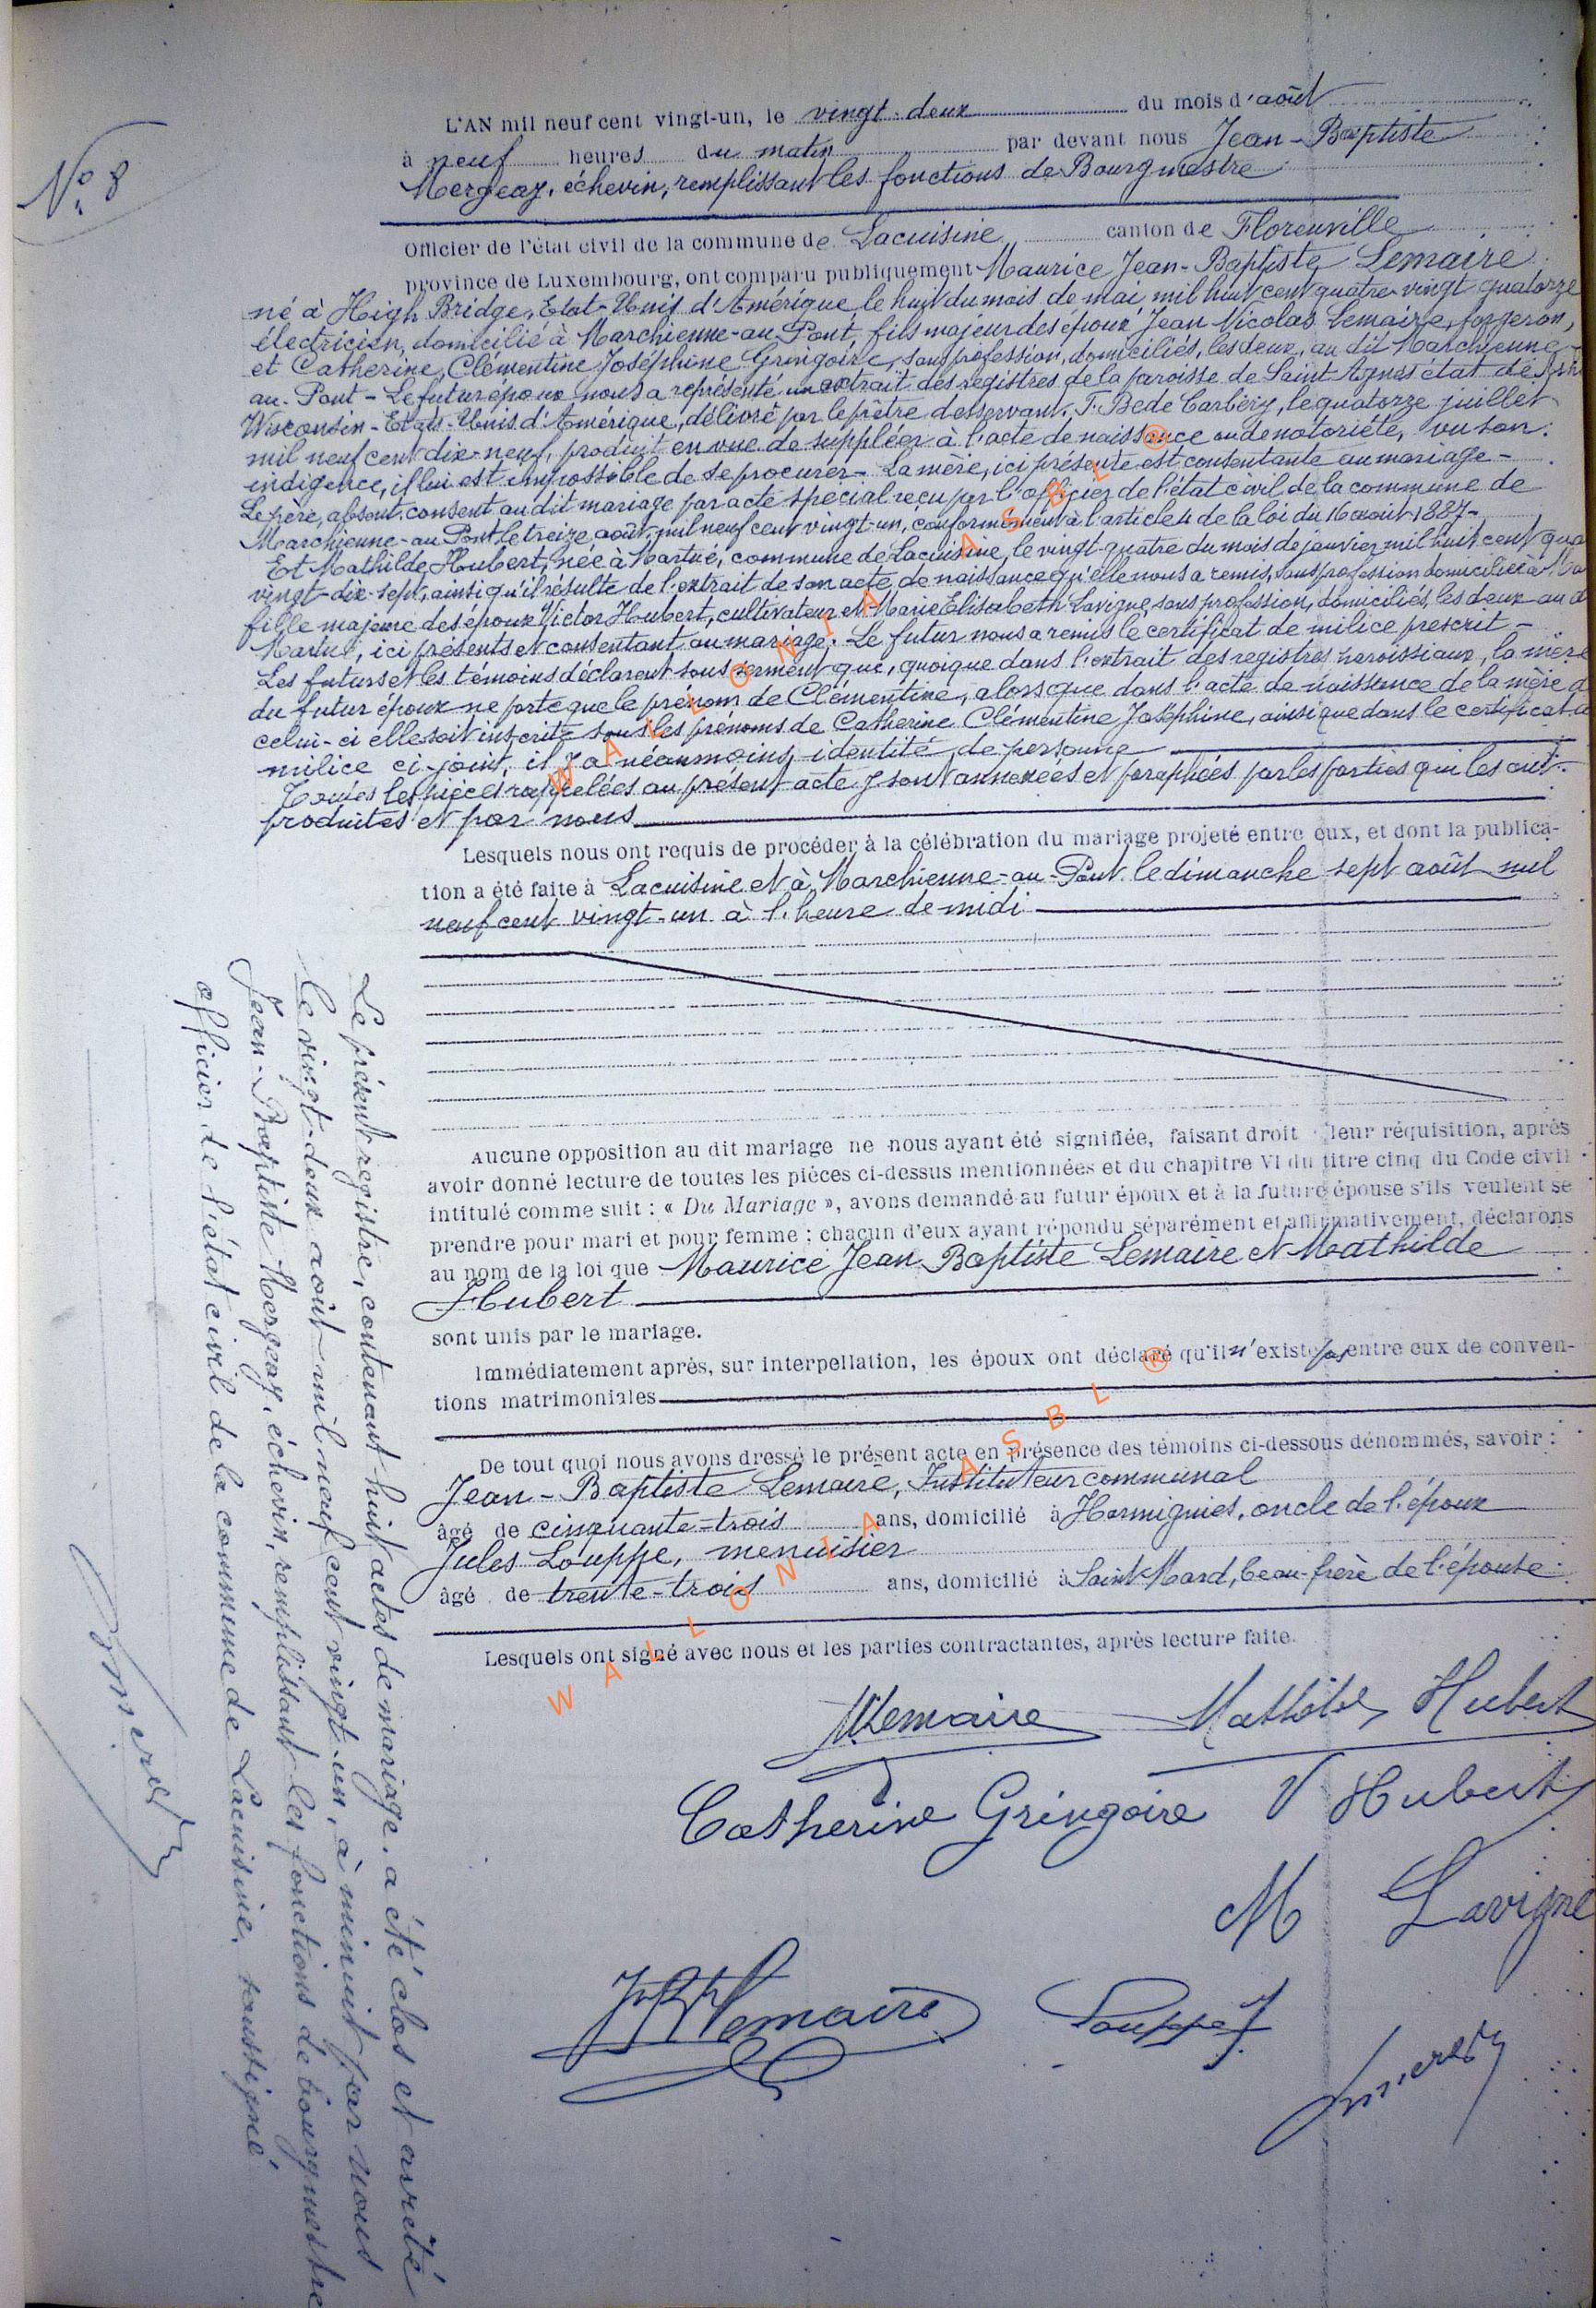 N° 8
L'AN mil neuf cent vingt-un, le vingt-deux du mois d'août
à neuf heures du matin par devant nous Jean-Baptiste
Mergeay, échevin, remplissant les fonctions de Bourgmestre
Officier de l'état civil de la commune de Lacuisine canton de Florenville
province de Luxembourg, ont comparu publiquement Maurice Jean-Baptiste Lemaire
né à High Bridge, Etat-Unis d'Amérique le huit du mois de mai mil huit cent quatre-vingt quatorze
électricien, domicilié à Marchienne-au-Pont, fils majeur des époux Jean Nicolas Lemaire, forgeron,
et Catherine, Clémentine Joséphine Gringoire, sans profession, domiciliés, les deux, au dit Marchienne-
au-Pont - Le futur époux nous a représenté un extrait des registres de la paroisse de Saint Agnès état de
Wisconsin - Etats-Unis d'Amérique, délivré par le prêtre desservant, T. Bede Carbery, le quatorze juillet
mil neuf cent dix-neuf, produit en vue de suppléer à l'acte de naissance ou de notoriété, vu son
indigence, il lui est impossible de se procurer - La mère, ici présente est consentante au mariage -
Le père, absent, consent au dit mariage par acte spécial reçu par l'officier de l'état civil de la commune de
Marchienne-au-Pont le treize août mil neuf cent vingt-un, conformément à l'article 4 de la loi du 16 août 1887-
Et Mathilde Hubert, née à Martué, commune de Lacuisine, le vingt-quatre du mois de janvier mil huit cent qua
vingt-dix-sept, ainsi qu'il résulte de l'extrait de son acte de naissance qu'elle nous a remis, sans profession domiciliée à Ma
fille majeure des époux Victor Hubert, cultivateur et Marie Elisabeth Lavigne, sans profession, domiciliés, les deux au d
Martué, ici présents et consentant au mariage. Le futur nous a remis le certificat de milice prescrit -
Les futurs et les témoins déclarent sous serment que, quoique dans l'extrait des registres paroissiaux, la mère
du futur époux ne porte que le prénom de Clémentine, alors que dans l'acte de naissance de la mère d
celui-ci elle soit inscrite sous les prénoms de Catherine Clémentine Joséphine, ainsi que dans le certificat de
milice ci-joint, il y a néanmoins identité de personne
Toutes les pièces rappelées au présent acte y sont annexées et paraphées par les parties qui les ont
produites et par nous
Lesquels nous ont requis de procéder à la célébration du mariage projeté entre eux, et dont la publica-
tion a été faite à Lacuisine et à Marchienne-au-Pont le dimanche sept août mil
neuf cent vingt-un à l'heure de midi
Aucune opposition au dit mariage ne nous ayant été signifiée, faisant droit leur réquisition, après
avoir donné lecture de toutes les pièces ci-dessus mentionnées et du chapitre VI du titre cinq du Code civil
intitulé comme suit : « Du Mariage », avons demandé au futur époux et à la future épouse s'ils veulent se
prendre pour mari et pour femme ; chacun d'eux ayant répondu séparément et affirmativement, déclarons
au nom de la loi que Maurice Jean Baptiste Lemaire et Mathilde
Hubert
sont unis par le mariage.
Immédiatement après, sur interpellation, les époux ont déclaré qu'il n'existe pas entre eux de conven-
tions matrimoniales
De tout quoi nous avons dressé le présent acte en présence des témoins ci-dessous dénommés, savoir :
Jean-Baptiste Lemaire, Instituteur communal
âgé de cinquante-trois ans, domicilié à Harmignies, oncle de l'époux
Jules Louppe, menuisier
âgé de trente-trois ans, domicilié à Saint-Mard, beau-frère de l'épouse
Lesquels ont signé avec nous et les parties contractantes, après lecture faite.
M Lemaire Mathilde Hubert
Catherine Gringoire V Hubert
M Lavigne
JBte Lemaire Louppe J.
Le présent registre, contenant huit actes de mariage, a été clos et arrêté
le vingt-deux août mil neuf cent vingt-un, à minuit par nous
Jean-Baptiste Mergeay, échevin, remplissant les fonctions de bourgmestre
officier de l'état civil de la commune de Lacuisine, soussigné
WALLONIA ASBL ®
WALLONIA ASBL ®